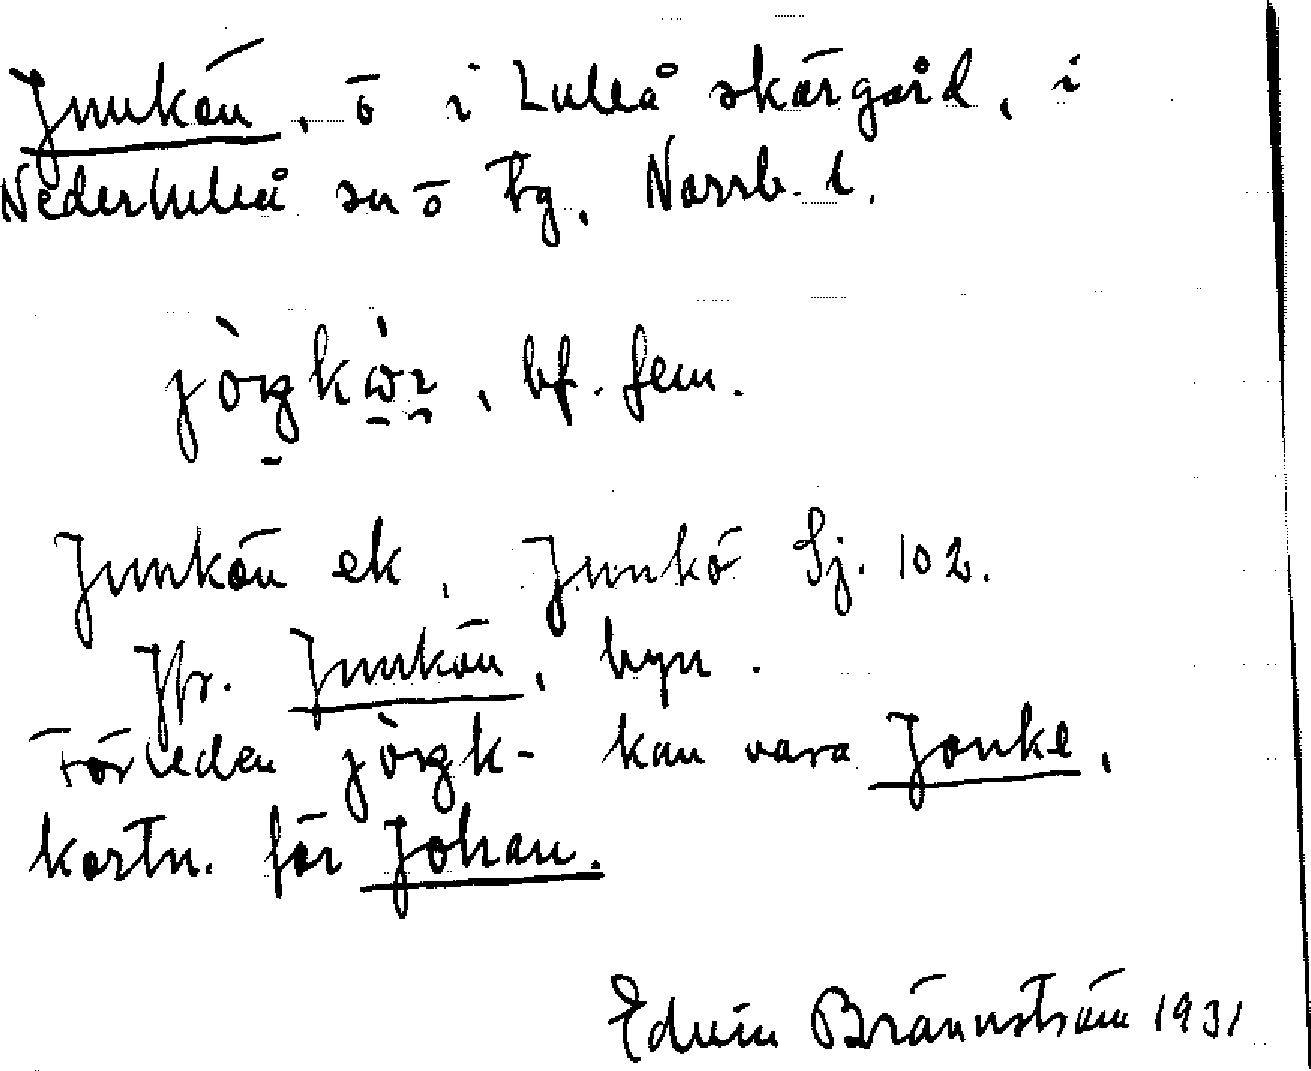 Junkön, ö i Luleå skärgård, i
Nederluleå sn o tg, Norrb. l.
bf. fem.
Junkön ek, Junkö Sj. 102.
Jfr. Junkön, byn.
Förleden kan vara Jonke,
kortn. för Johan.
Edvin Brännström 1931